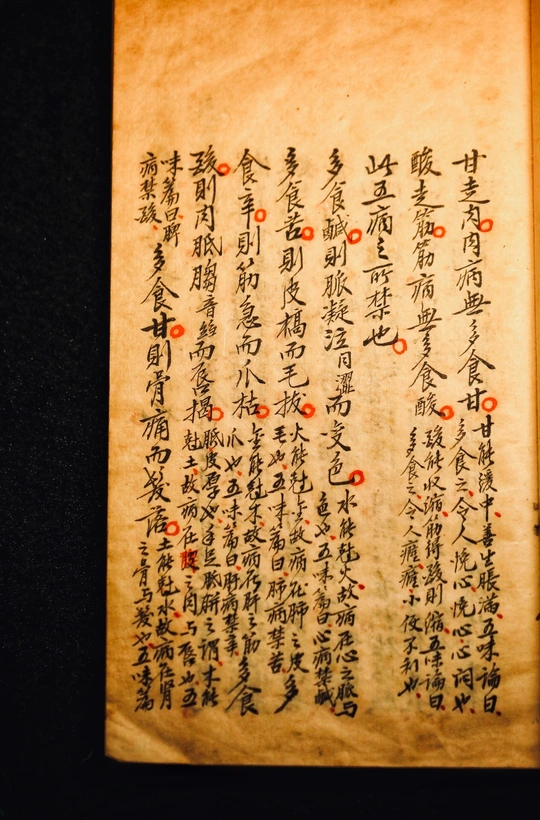 甘走肉肉病無多食甘
甘能緩中善生脹滿五味論曰
多食之令人悗心悗心心悶也
酸走筋筋病無多食酸
酸能收病筋得酸則縮五味論曰
多食之令人癃癃小便不利也
此五病之所禁也
多食鹹則脈凝泣同澀而变色
水能尅火故病在心之脈与
色也五味篇曰心病禁鹹
多食苦則皮槁而毛拔
火能尅金故病在肺之皮
毛也五味篇曰肺病禁苦
多
食辛則筋急而爪枯
金能尅木故病在肝之筋
爪也五味篇曰肝病禁辛
多食
酸則肉胝䐢音縐而唇揭
胝皮厚也手足胝胼之謂木能
尅土故病在脾之肉与唇也五
味篇曰脾
病禁酸
多食甘則骨痛而髮落
土能尅水故病在腎
之骨与髮也五味篇